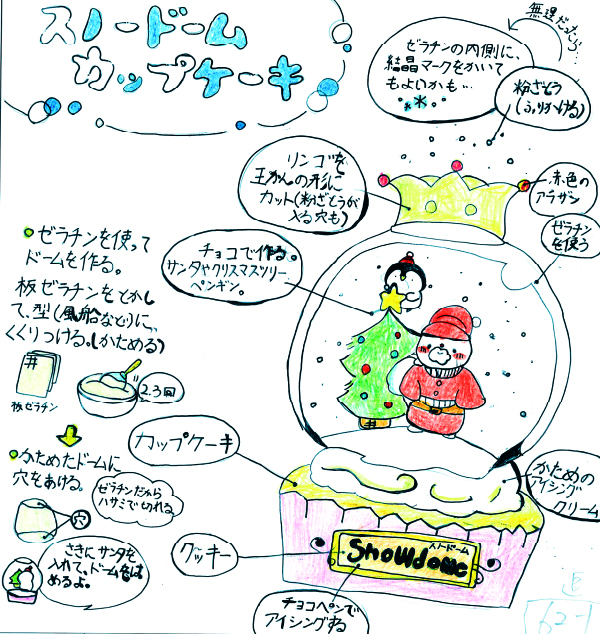 スノードーム
カップケーキ
無理だったら…
ゼラチンの内側に、
結晶マークをかいて
もよいかも…
粉ざとう
(ふりかける)
リンゴを
王かんの形に
カット(粉ざとうが
入る穴も)
赤色の
アラザン
ゼラチン
を使う
チョコで作る。
サンタやクリスマスツリー
ペンギン。
ゼラチンを使って
ドームを作る。
板ゼラチンをとかし
て、型(風船など)に、
くくりつける。(かためる)
板ゼラチン
2.3回
かためたドームに
穴をあける。
ゼラチンだから
ハサミで切れる
穴
さきにサンタを
入れて、ドームをは
めるよ。
カップケーキ
かための
アイシング
クリーム
クッキー
スノードーム
Snowdome
チョコペンで
アイシングする
62-1